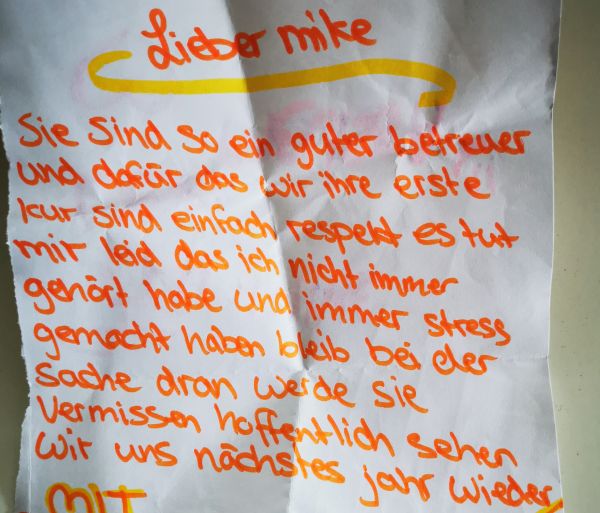 Lieber mike
Sie Sind so ein guter betreuer
und dafür das wir ihre erste
kur sind einfach respekt es tut
mir leid das ich nicht immer
gehört habe und immer stress
gemacht haben bleib bei der
Sache dran werde sie
Vermissen hoffentlich sehen
wir uns nächstes jahr wieder
MIT